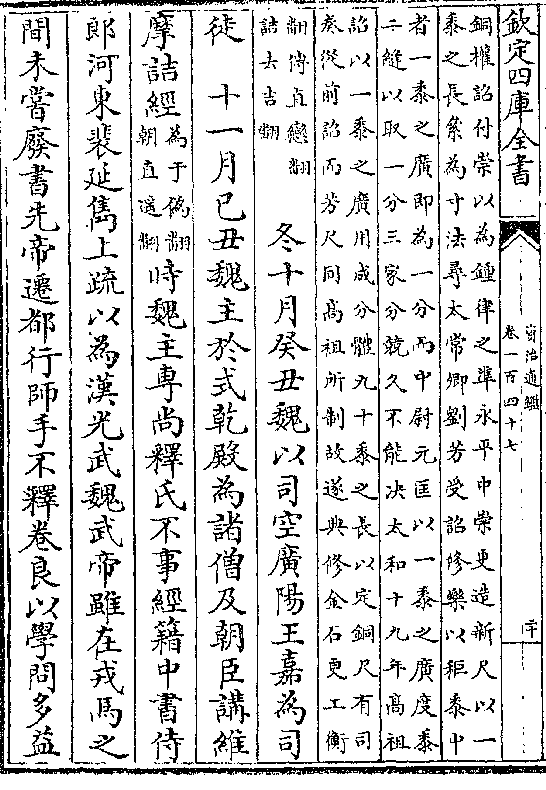 欽定四庫全書
資治通鑑
卷一百四十七
二十
銅權詔付崇以為鍾律之準永平中崇更造新尺以一
黍之長絫為寸法尋太常卿劉芳受詔修樂以秬黍中
者一黍之廣即為一分而中尉元匡以一黍之廣度黍
二縫以取一分三家分競久不能决太和十九年高祖
詔以一黍之廣用成分體九十黍之長以定銅尺有司
奏從前詔而芳尺同高祖所制故遂典修金石更工衡
翻傳直戀翻
詰去吉翻
冬十月癸丑魏以司空廣陽王嘉為司
徒 十一月已丑魏主於式乾殿為諸僧及朝臣講維
摩詰經
為于偽翻
朝直遥翻
時魏主專尚釋氏不事經籍中書侍
郎河東裴延雋上疏以為漢光武魏武帝雖在戎馬之
間未嘗廢書先帝遷都行師手不釋卷良以學問多益